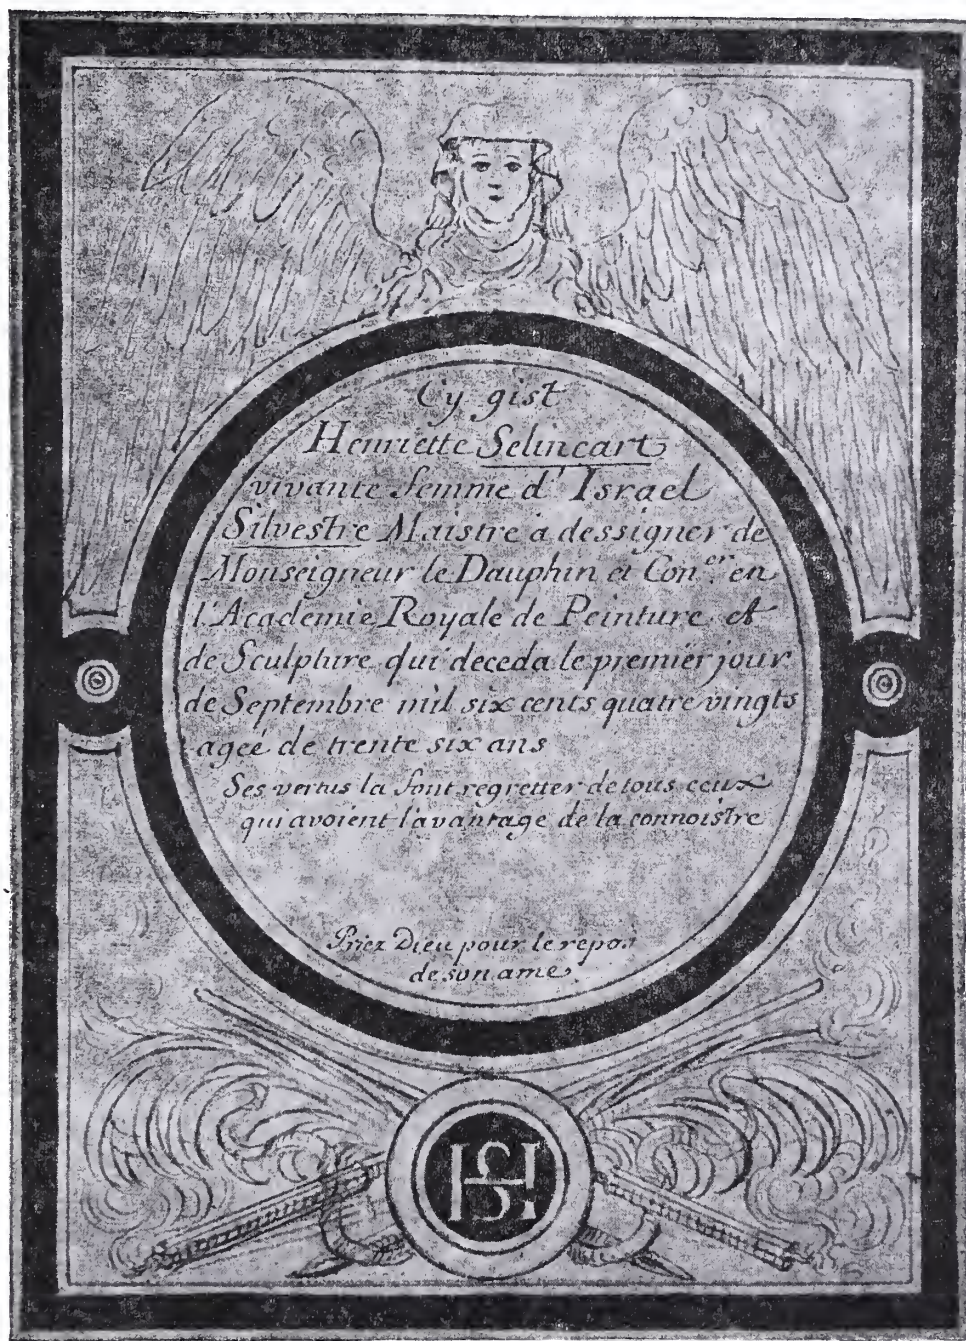 Cy gist
Henriette Selincart
vivante femme d'Israel
Silvestre Maistre a dessigner de
Monseigneur le Dauphin et Con.er en
l'Academie Royale de Peinture et
de Sculpture qui deceda le premier jour
de Septembre mil six cents quatre vingts
ageé de trente six ans
Ses vertus la font regretter de tous ceux
qui avoient l'avantage de la connoistre
Priez Dieu pour le repos
de son ame
HS